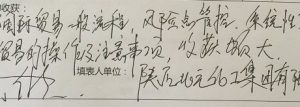 收获:
国际贸易一般流程、风险点管控、系统性
贸易的操作及注意事项,收获颇大
填表人单位: 陕 北元化工集团有